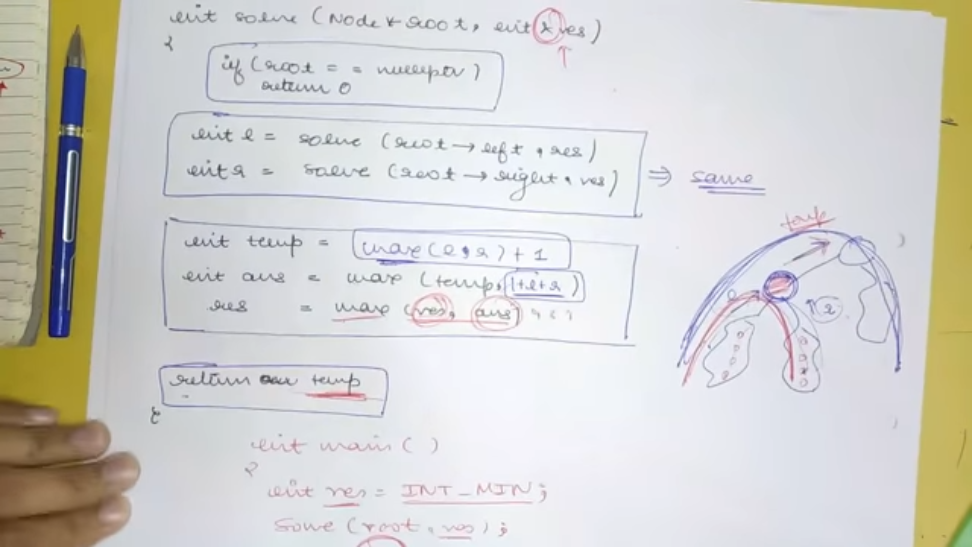 int solve (Node* root, int &res)
{
if (root == nullptr)
return 0
int l = solve (root → left, res)
int r = solve (root → right, res)
⇒ same
int temp = max (l, r) + 1
int ans = max (temp, 1+l+r)
res = max (res, ans);
return temp
}
int main ( )
{
int res = INT_MIN;
solve (root, res);
temp
l
r